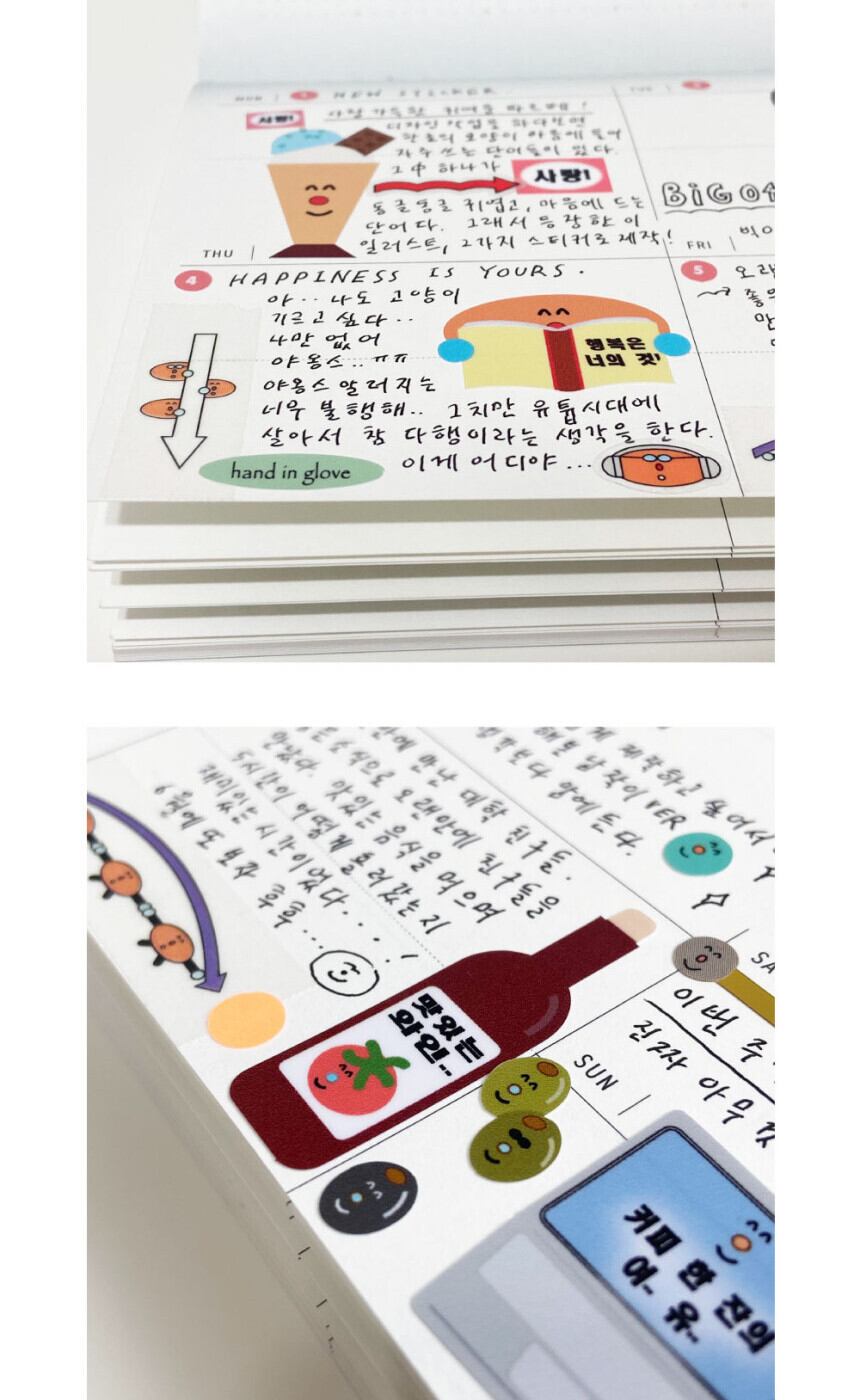 NEW STICKER
사랑!
사랑 가득한
디자인 작업을 하다보면
한글의 모양이 마음에 들어
자주 쓰는 단어들이 있다.
그 中 하나가
사랑!
동글동글 귀엽고, 마음에 드는
단어다. 그래서 등장한 이
일러스트, 2가지 스티커로 제작!
THU
FRI
4
HAPPINESS IS YOURS.
아.. 나도 고양이
기르고 싶다..
나만 없어
야옹스.. ㅠㅠ
야옹스 알러지는
너무 불행해.. 그치만 유튭시대에
살아서 참 다행이라는 생각을 한다.
이게 어디야...
행복은
너의 것!
hand in glove
5
만난 대학 친구들.
오랜만에 친구들을
맛있는 음식을 먹으며
5시간이 어떻게 흘러갔는지
재미있는 시간이었다...
6월에 또 보자 후후...
VER
맛있는
와인..
SUN
이번 주
진짜 아무
커피 한 잔의
여- 유..